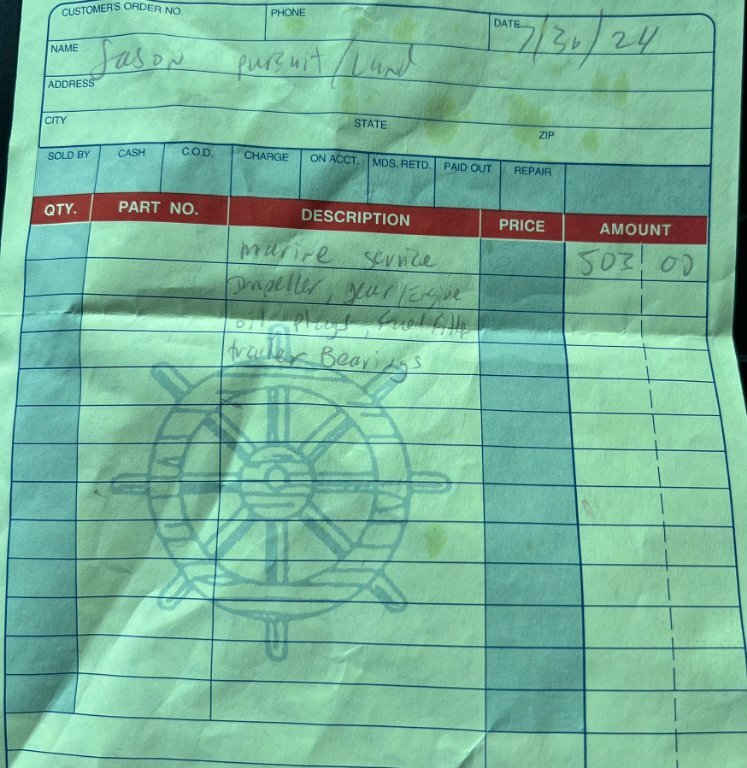 CUSTOMER'S ORDER NO. PHONE DATE 7/30/24
NAME Jason pursuit/Lund
ADDRESS
CITY STATE ZIP
SOLD BY CASH C.O.D. CHARGE ON ACCT. MDS. RETD. PAID OUT REPAIR
QTY. PART NO. DESCRIPTION PRICE AMOUNT
marine service 503 00
Impeller, gear/Engine
oil, plugs, fuel filter
trailer Bearings